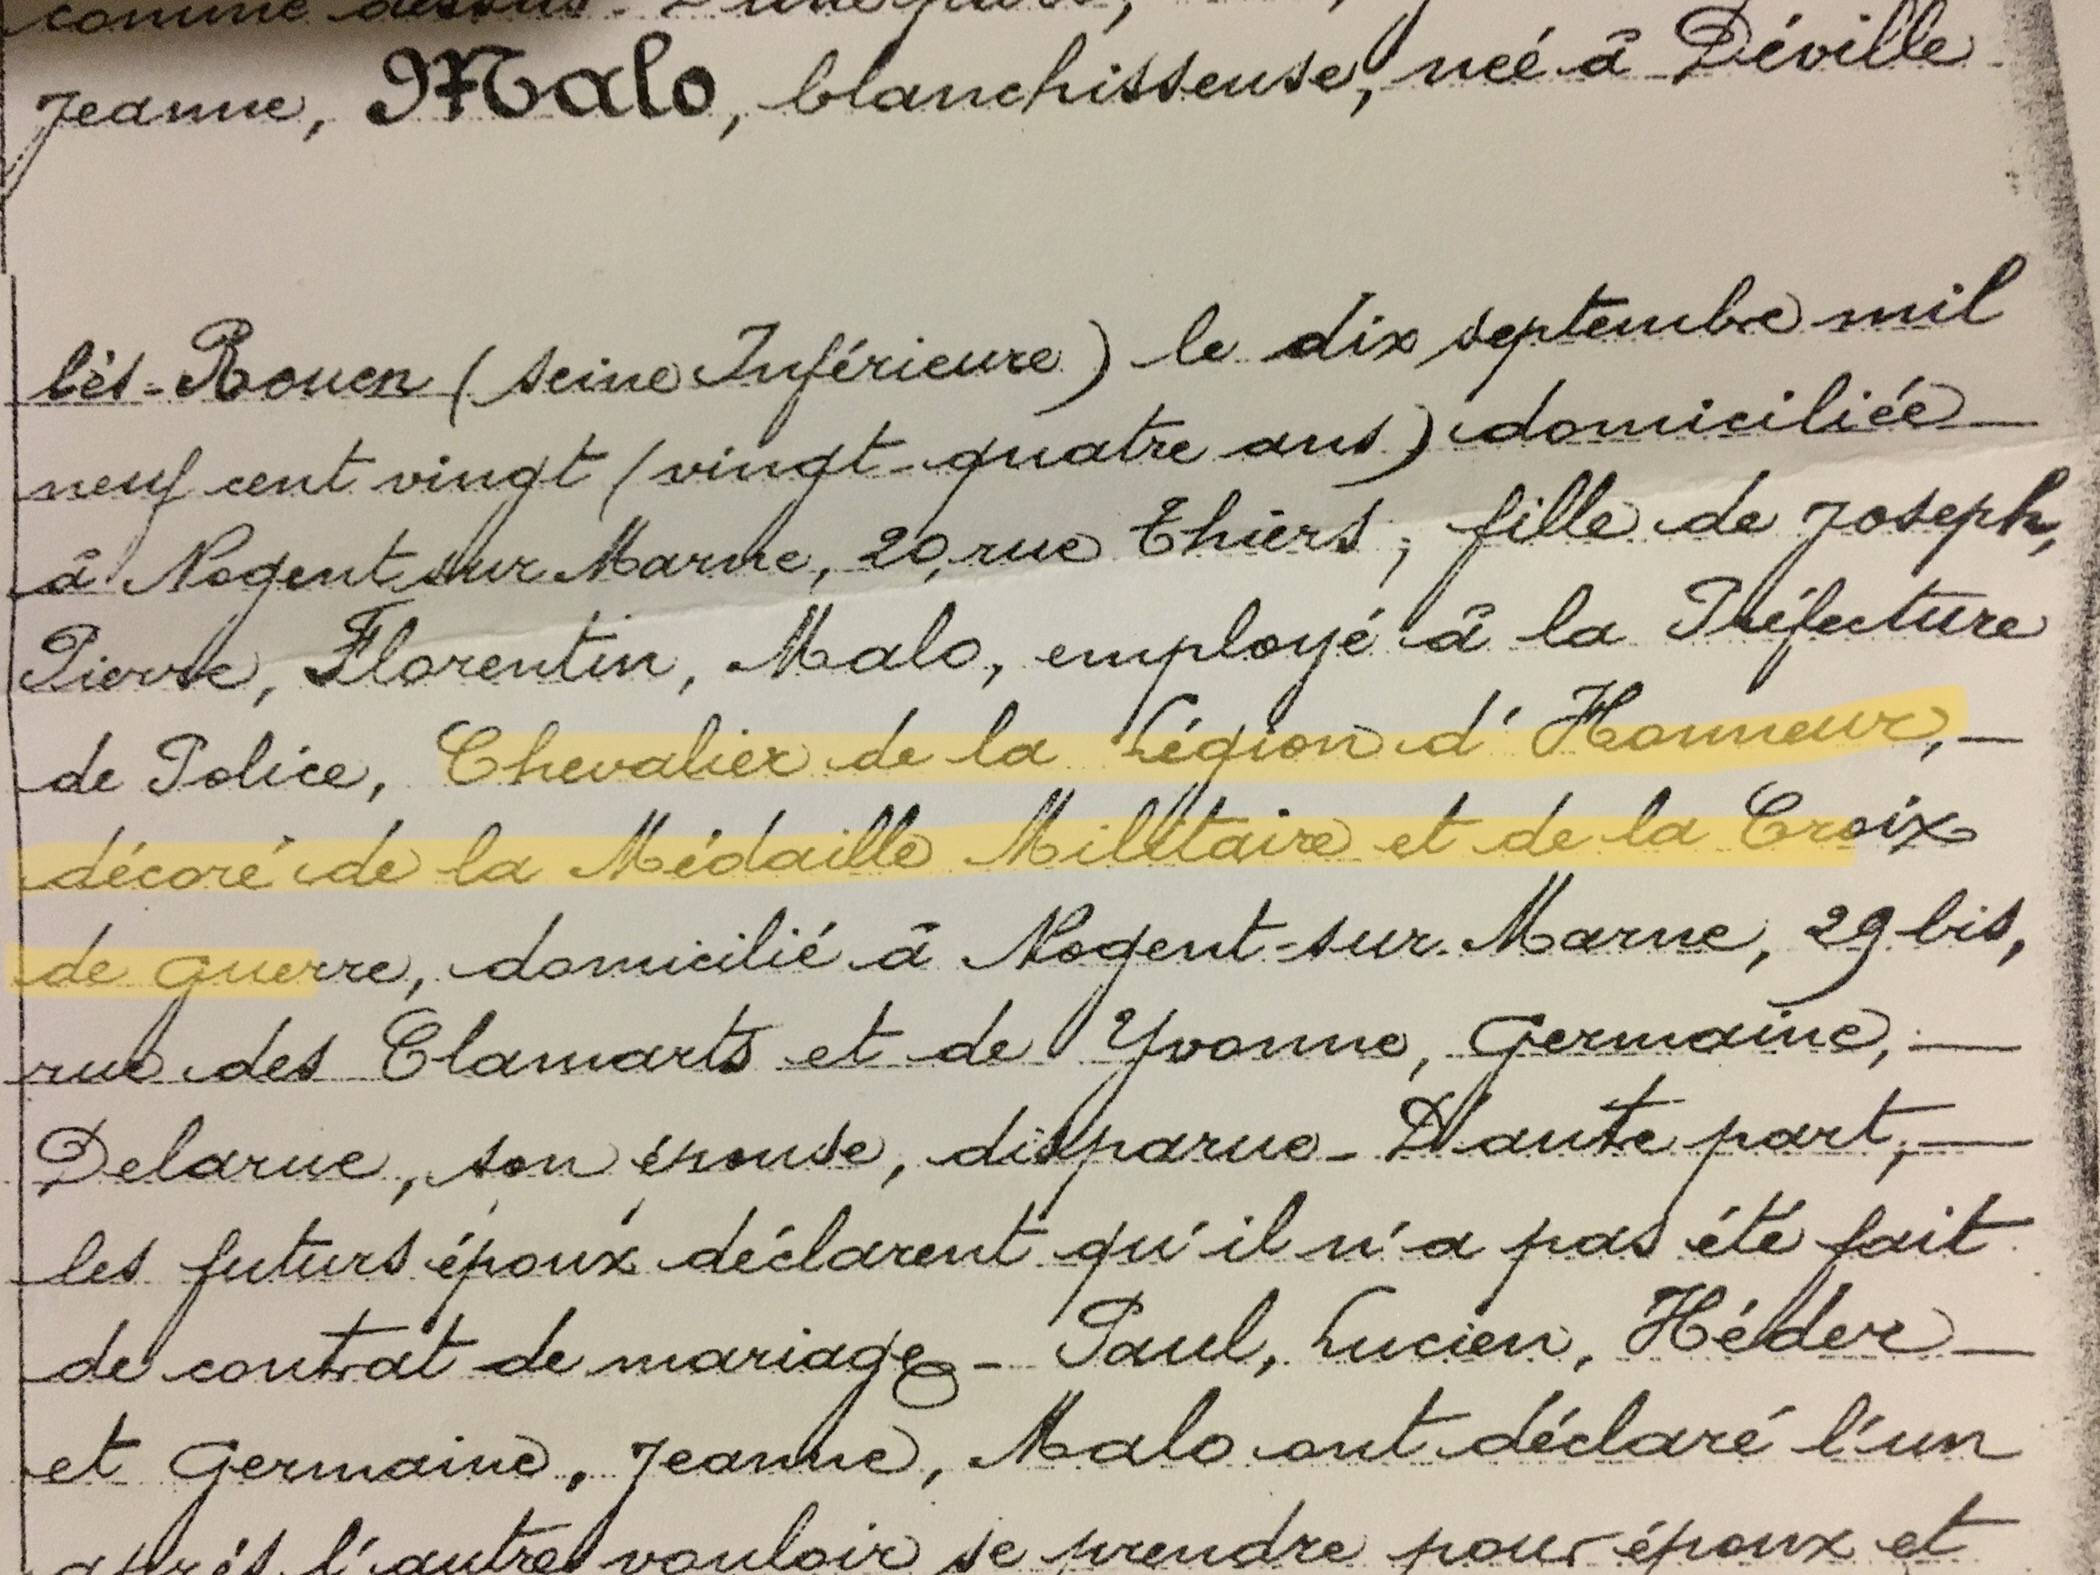 comme dessus - D'une part,
Jeanne, Malo, blanchisseuse, née à Déville
lès-Rouen (Seine Inférieure) le dix septembre mil
neuf cent vingt (vingt-quatre ans) domiciliée —
à Nogent sur Marne, 20, rue Thiers, fille de Joseph,
Pierre, Florentin, Malo, employé à la Préfecture
de Police, Chevalier de la Légion d'Honneur, —
décoré de la Médaille Militaire et de la Croix
de guerre, domicilié à Nogent-sur-Marne, 29 bis,
rue des Clamarts et de Yvonne, Germaine, —
Delarue, son épouse, disparue - D'autre part, —
les futurs époux déclarent qu'il n'a pas été fait
de contrat de mariage - Paul, Lucien, Héder —
et Germaine, Jeanne, Malo ont déclaré l'un
après l'autre vouloir se prendre pour époux et